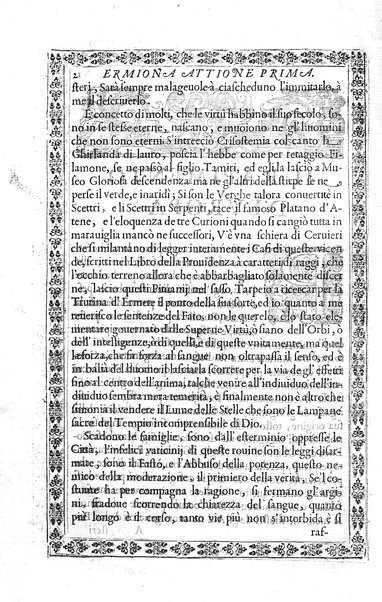 2 ERMIONA ATTIONE PRIMA.
steri, Sarà sempre malageuole à ciascheduno l'immitarlo, à
me il descriuerlo.
E concetto di molti, che le virtù habbino il suo secolo, so-
no in se stesse eterne, nascano, e muoiono ne gl'huomini
che non sono eterni S'intrecciò Crisostemia col canto la
Ghirlanda di lauro, poscia l'hebbe come per retaggio Fi-
lamone, se ne passò al figlio Tamiri, ed egli la lasciò a Mu-
seo Gloriosa descendenza ma ne gl'altri della stirpe se ne
perse il verde, e inaridì; Si son le Verghe talora conuertite in
Scettri, e li Scettri in Serpenti, tace il famoso Platano d'A-
tene, e l'eloquenza de tre Curioni quando si cangiò tutta in
marauiglia mancò ne successori, V'è vna schiera di Ceruieri
che si milantano di legger interamente i Casi di queste vicen-
de, scritti nel Libro della Prouidenza à caratteri di raggi, che
l'occhio terreno allora che è abbarbagliato solamente discer
ne, lascio questi Piùanij nel sasso, Tarpeio à ricercar per la
Trutina d'Ermete il ponto della sua sorte, ed io quanto a me
referisco le sentenze del Fato, non le querelo, è lo stato ele-
mentare gouernato dalle Superne Virtù, ò siano dell'Orbi, ò
dell'intelligenze, ò di quella, e di queste vnitamente, ma quel
la forza, che fa forza al sangue non oltrapassa il senso, ed è
in balìa del'huomo il lasciarla scorrere per la via de gl'effetti
fino al centro dell'anima, talche venire all'indiuiduo dell'in-
diuiduo sembra mera temerità, e finalmente non è altro che
simonia il vendere il Lume delle Stelle che sono le Lampane
sacre del Tempio incomprensibile di Dio.
Scadono le famiglie, sono dall'esterminio oppresse le
Città, l'infelici vaticinij di queste rouine son le leggi disar-
mate, sono il Fasto, e l'Abbuso della potenza, questo ne-
mico della moderazione, il primiero della verità, Se'l co-
stume ha per compagna la ragione, si fermano gl'argi-
ni, stadoue scorrendo la chiarezza del sangue, quanto
più longo è il corso, tanto vie più non s'intorbida è si
raf-